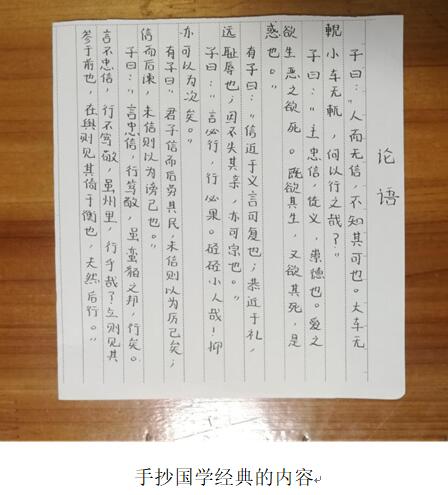 论语
子曰:"人而无信,不知其可也。大车无
輗小车无軏,何以行之哉?"
子曰:"主忠信,徙义,崇德也。爱之
欲生恶之欲死。既欲其生,又欲其死,是
惑也。"
有子曰:"信近于义言可复也;恭近于礼,
远耻辱也;因不失其亲,亦可宗也。"
子曰:"言必行,行必果。硁硁小人哉!抑
亦可以为次矣。"
有子曰"君子信而后劳其民,未信则以为厉己矣;
信而后谏,未信则以为谤己也。"
子曰:"言忠信,行笃敬,虽蛮貊之邦,行矣。
言不忠信,行不笃敬,虽州里,行乎哉?立则见其
参于前也,在舆则见其倚于衡也,夫然后行。"
手抄国学经典的内容